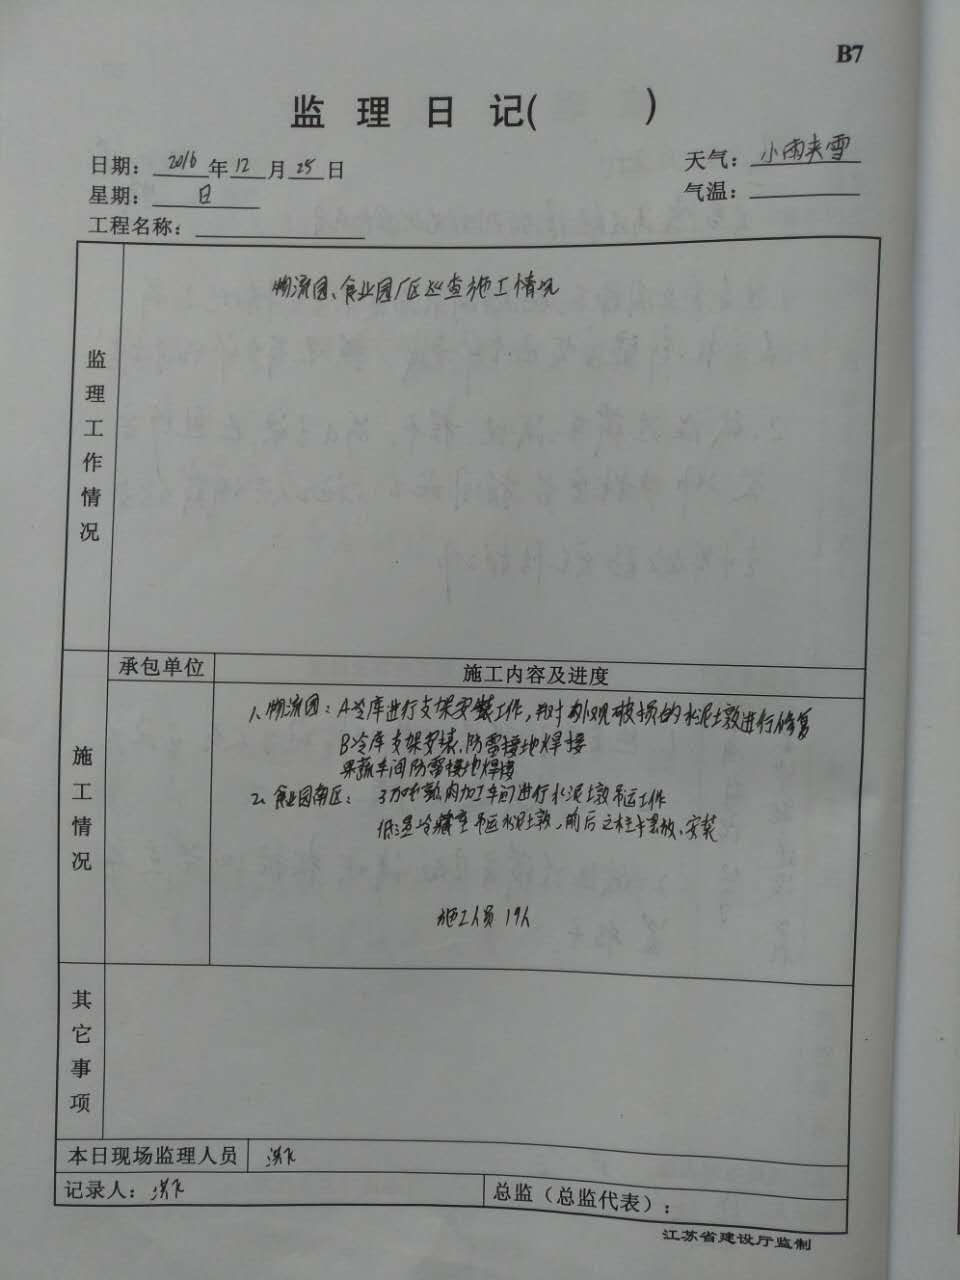 B7
监 理 日 记( )
日期: 2016 年 12 月 25 日
天气: 小雨夹雪
星期: 日
气温:
工程名称:
监理工作情况
物流园、食业园厂区巡查施工情况
施工情况
承包单位
施工内容及进度
1、物流园: A冷库进行支架安装工作,并对外观破损的水泥墩进行修复
B冷库支架安装、防雷接地焊接
果蔬车间防雷接地焊接
2、食业园南区: 3万吨熟肉加工车间进行水泥墩吊运工作
低温冷藏室吊运水泥墩,前后立柱摆放、安装
施工人员 19人
其它事项
本日现场监理人员 洪飞
记录人: 洪飞
总监(总监代表):
江苏省建设厅监制